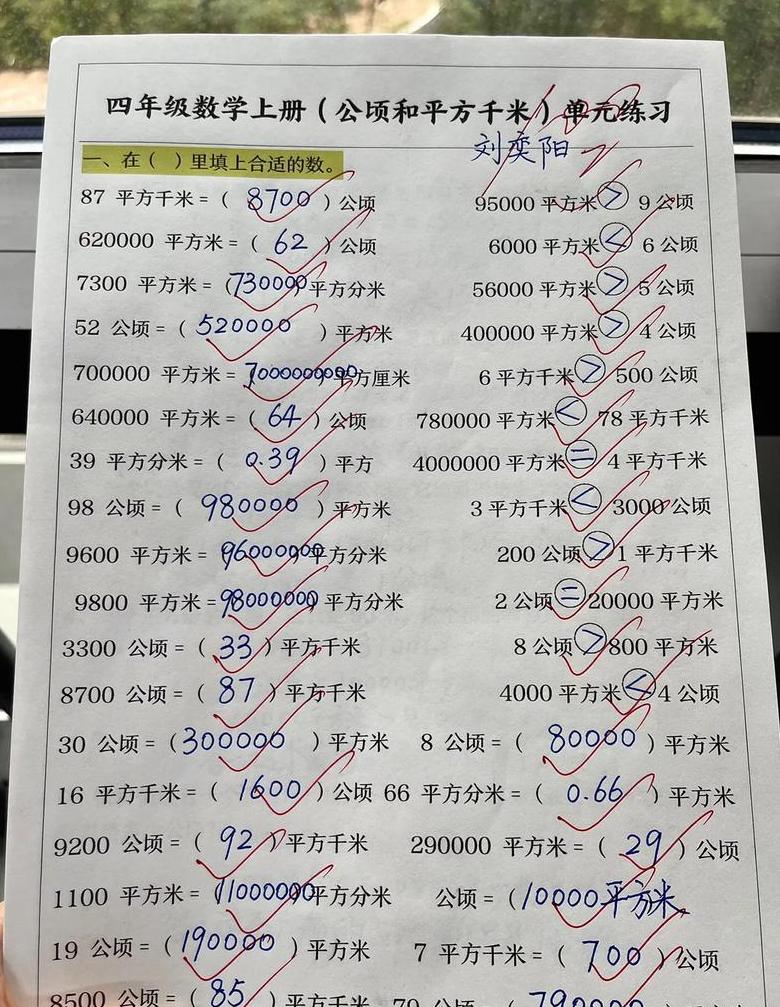 四年级数学上册（公顷和平方千米）单元练习
刘奕阳
一、在（ ）里填上合适的数。
87 平方千米=（ 8700 ）公顷 95000平方米>9公顷
620000 平方米=（ 62 ）公顷 6000平方米<6公顷
7300 平方米=（730000）平方分米 56000平方米>5公顷
52 公顷=（ 520000 ）平方米 400000平方米>4公顷
700000 平方米=7000000000平方厘米 6平方千米>500公顷
640000 平方米=（ 64 ）公顷 780000平方米<78平方千米
39 平方分米=（ 0.39 ）平方 4000000平方米=4平方千米
98 公顷=（ 980000 ）平方米 3平方千米<3000公顷
9600 平方米=96000000平方分米 200公顷>1平方千米
9800 平方米=98000000平方分米 2公顷=20000平方米
3300 公顷=（ 33 ）平方千米 8公顷>800平方米
8700 公顷=（ 87 ）平方千米 4000平方米<4公顷
30 公顷=（300000 ）平方米 8 公顷=（ 80000 ）平方米
16 平方千米=（ 1600 ）公顷 66 平方分米=（ 0.66 ）平方米
9200 公顷=（ 92 ）平方千米 290000 平方米=（ 29 ）公顷
1100 平方米=（11000000平方分米 公顷=（10000平方米
19 公顷=（190000 ）平方米 7 平方千米=（ 700 ）公顷
8500 公顷=（ 85 ）平方千米 79 公顷=（ 790000 ）平方米